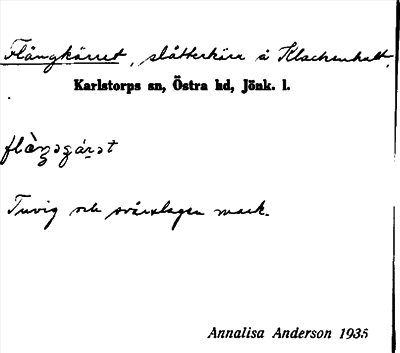 Flängkärret, slåtterkärr å Klackenhult,
Karlstorps sn, Östra hd, Jönk. l.
Tuvig och svårslagen mark.
Annalisa Anderson 1935